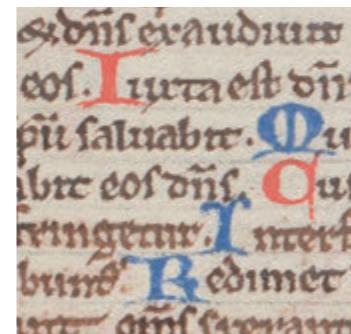 & dñs exaudiuit
eos. Iuxta est dñ
pū saluabit. Mu
abit eos dñs. Cus
fringetur. Interf
Redimet